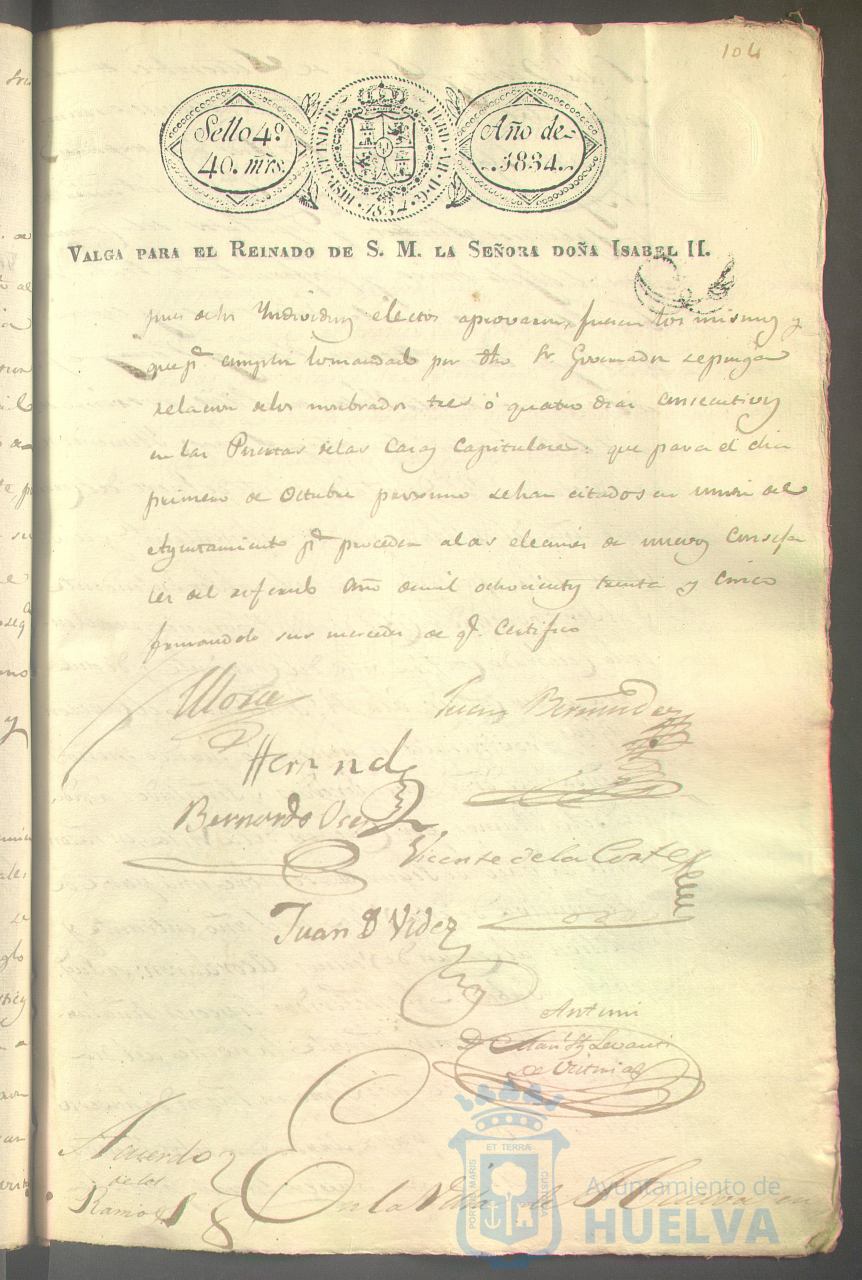 104
Sello 4º
40. mrs.
HISP. ET IND. R. FERD. VII. D. G.
1834
Año de
1834.
VALGA PARA EL REINADO DE S. M. LA SEÑORA DOÑA ISABEL II.
pues delos Yndividuos electos aprovaron, fueron los mismos y
que pª cumplir lo mandado por dho Sr Governador se ponga
relacion delos nombrados tres ó quatro dias consecutivos
en las Puertas delas Casas Capitulares: que para el dia
primero de Octubre proximo sehan citados en union del
Ayuntamiento pª proceder alas elecciones de nuevos Conseja
les del referido Año demil ochocientos treinta y cinco
firmandolo sus mercedes de qe. Certifico
Mora
Juan Bermudez
Hernndz
Bernardo
Vicente dela Corte
Juan Videz
Antemi
Acuerdo
delos
Ramos
En la Villa de Huelva en
PORTUS MARIS ET TERRAE CUSTODIA
Ayuntamiento de
HUELVA